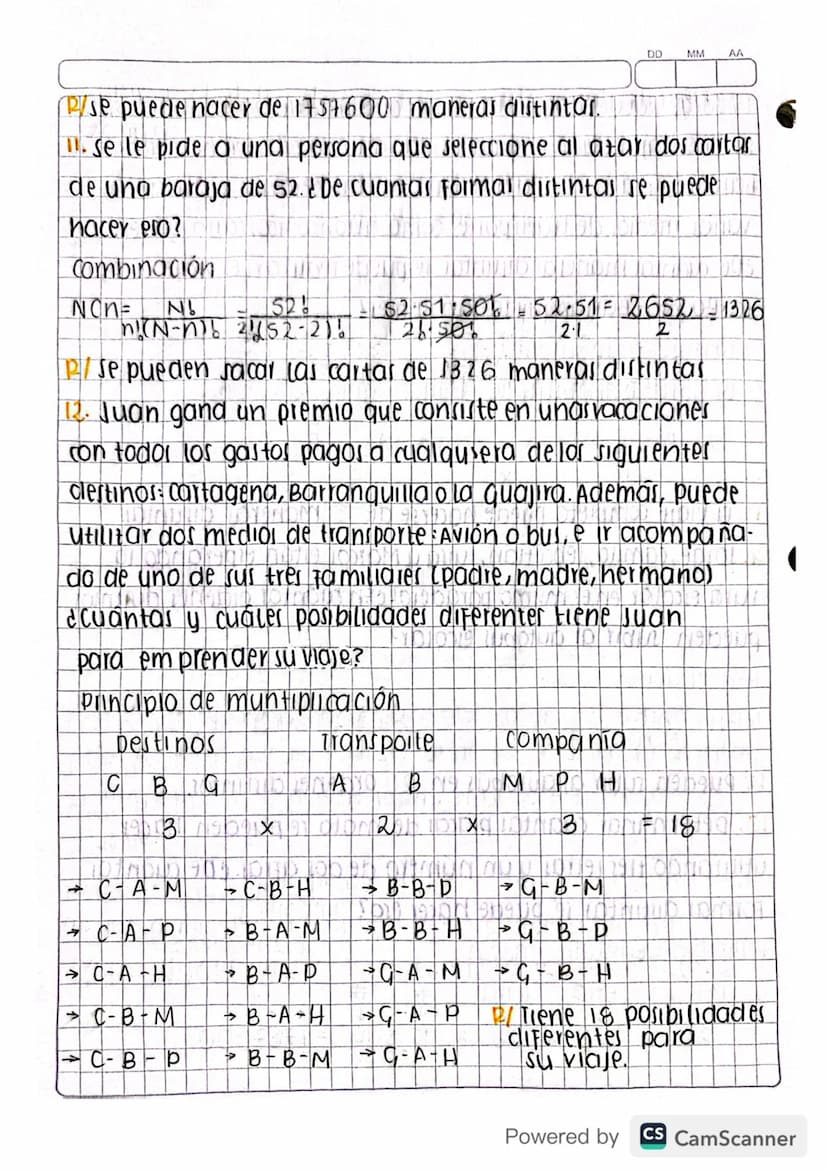 DD MM AA
R/ se puede hacer de 1757600 maneras distintas.
11. se le pide a una persona que seleccione al azar dos cartas
de una baraja de 52. ¿De cuantas formas distintas se puede
hacer eso?
combinación
NCn= N! / n!(N-n)! = 52! / 2!(52-2)! = 52·51·50! / 2!·50! = 52·51 / 2·1 = 2652 / 2 = 1326
R/ se pueden sacar las cartas de 1326 maneras distintas
12. Juan ganó un premio que consiste en unas vacaciones
con todos los gastos pagos a cualquiera de los siguientes
destinos: Cartagena, Barranquilla o la Guajira. Además, puede
utilizar dos medios de transporte: Avión o bus, e ir acompaña-
do de uno de sus tres familiares (padre, madre, hermano)
¿Cuántas y cuáles posibilidades diferentes tiene Juan
para emprender su viaje?
Principio de muntiplicación
Destinos Transporte compañía
C B G A B M P H
3 x 2 x 3 = 18
→ C-A-M → C-B-H → B-B-P → G-B-M
→ C-A-P → B-A-M → B-B-H → G-B-P
→ C-A-H → B-A-P → G-A-M → G-B-H
→ C-B-M → B-A-H → G-A-P R/ Tiene 18 posibilidades
diferentes para
→ C-B-P → B-B-M → G-A-H su viaje.
Powered by CS CamScanner